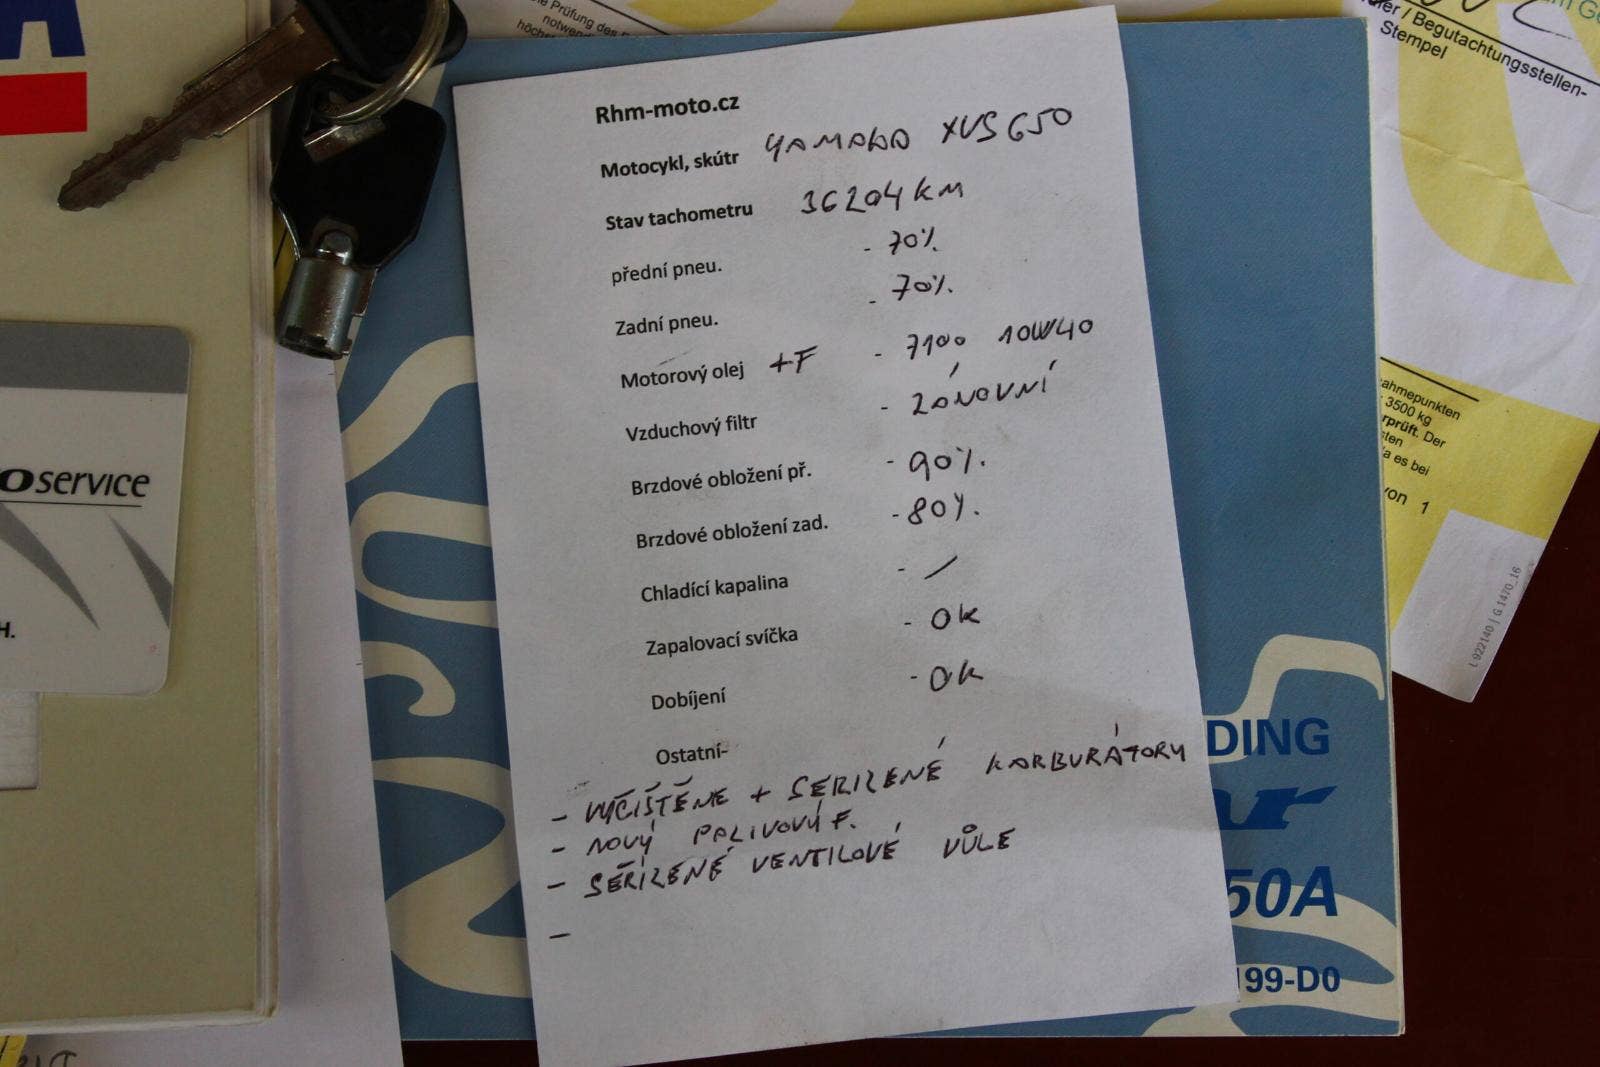 Rhm-moto.cz
Motocykl, skútr YAMAHA XVS 650
Stav tachometru 36204 KM
přední pneu. - 70%
Zadní pneu. - 70%.
Motorový olej +F - 7100 10W40
Vzduchový filtr - ZÁNOVNÍ
Brzdové obložení př. - 90%.
Brzdové obložení zad. - 80%.
Chladící kapalina - /
Zapalovací svíčka - OK
Dobíjení - OK
Ostatní-
- VYČIŠTĚNE + SEŘIZENÉ KARBURÁTORY
- NOVÝ PALIVOVÝ F.
- SEŘÍZENÉ VENTILOVÉ VŮLE
-
A
service
H.
ie Prüfung des
notwend
höchs
ler / Begutachtungsstellen-
Stempel
ahmepunkten
3500 kg
rprüft. Der
sten
a es bei
von 1
L 922140 | G 1470_16
DING
ar
50A
199-D0